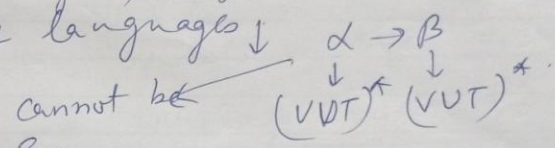 languages ↓ α → β
↓ ↓
cannot be (VUT)* (VUT)*